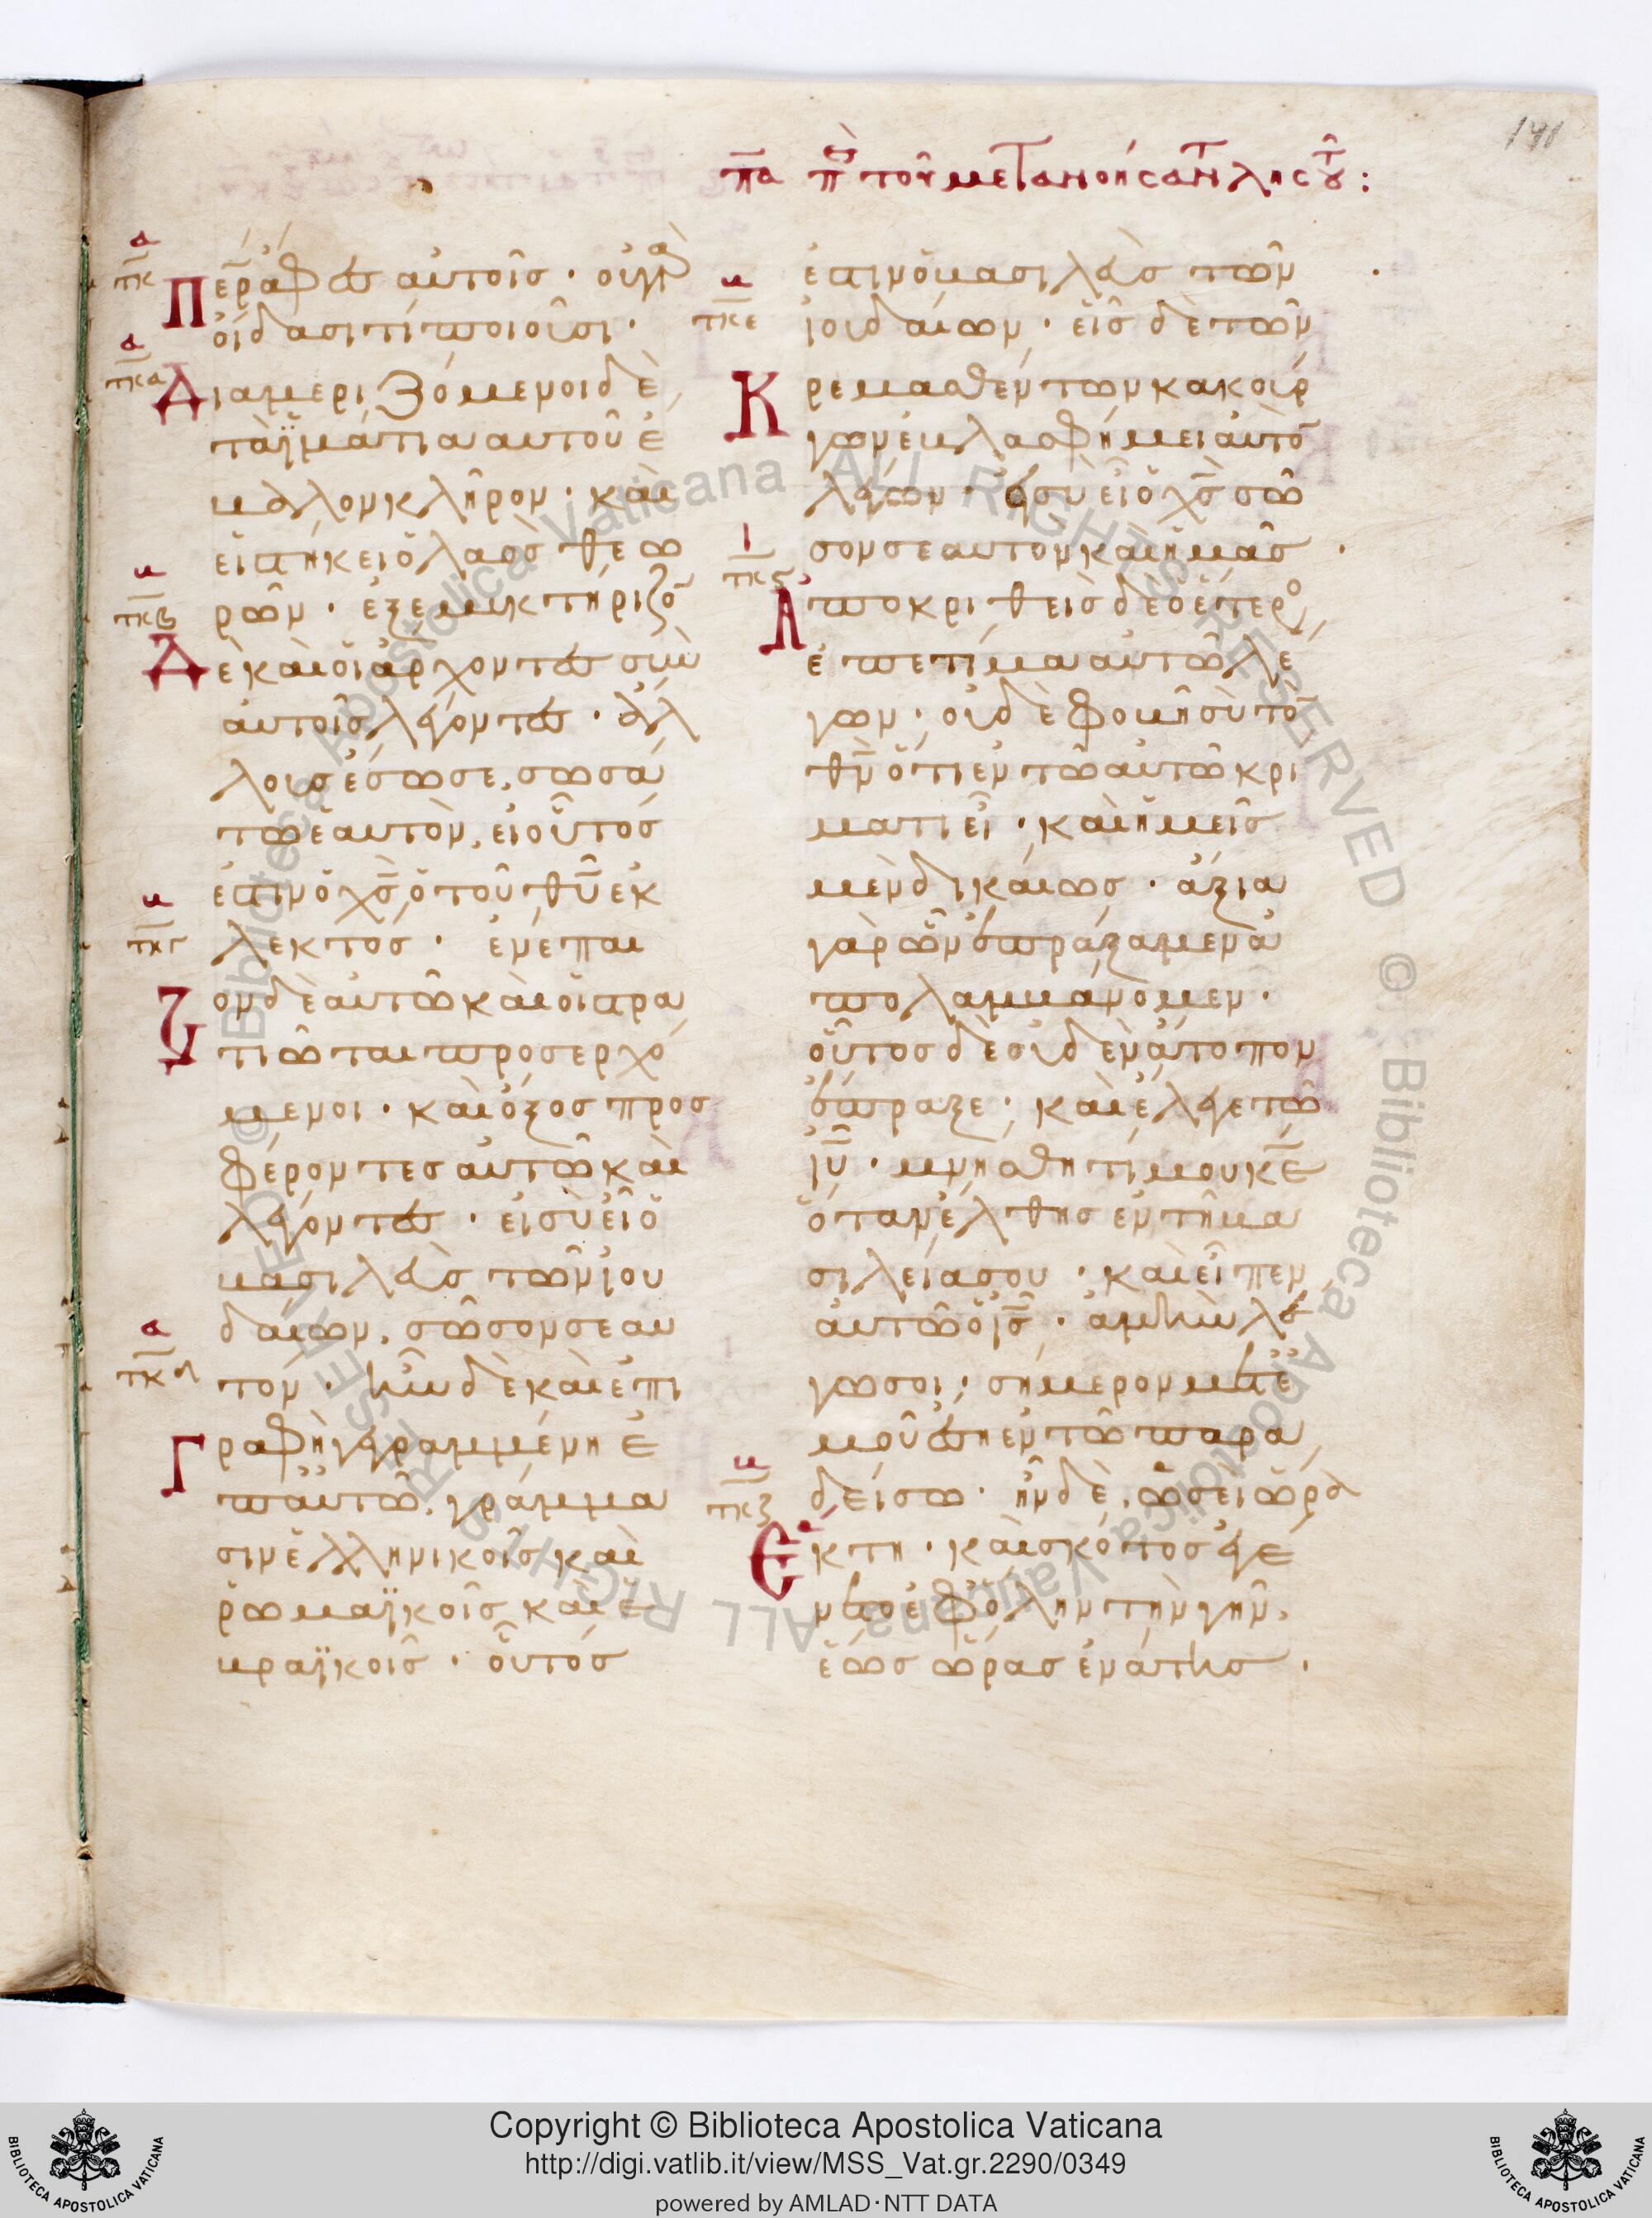 141
π̅α̅ π̅ε̅ τοῦ μετανοήσαντ λῃστοῦ:
α
τκ
Περ ἄφες αὐτοῖς · οὐ γὰρ
οἴδασι τί ποιοῦσι ·
α
τκα
Διαμεριζόμενοι δὲ
τὰ ἱμάτια αὐτοῦ ἔ
βαλλον κλῆρον · καὶ
εἱστήκει ὁ λαὸς θεω
ρῶν · ἐξεμυκτήριζο̅
β
τκβ
Δὲ καὶ οἱ ἄρχοντες σὺν
αὐτοῖς λέγοντες · ἄλ
λους ἔσωσε, σωσά
τω ἑαυτὸν, εἰ οὗτός
ἐστιν ὁ χ̅ς̅ ὁ τοῦ θ̅υ̅ ἐκ
λεκτός · ἐνέπαι
β
τκγ
ζον δὲ αὐτῷ καὶ οἱ στρα
τιῶται προσερχό
μενοι · καὶ ὄξος προσ
φέροντες αὐτῷ καὶ
λέγοντες · εἰ σὺ εἶ ὁ
βασιλεὺς τῶν ἰου
δαίων, σῶσον σεαυ
τόν · ἦν δὲ καὶ ἐπι
α
τκδ
Γραφὴ γεγραμμένη ἐ
π' αὐτῷ, γράμμα
σιν ἑλληνικοῖς καὶ
ῥωμαϊκοῖς καὶ ἑ
βραϊκοῖς · οὗτός
ἐστιν ὁ βασιλεὺς τῶν
ἰουδαίων · εἷς δὲ τῶν
β
τκε
Κρεμασθέντων κακούρ
γων ἐβλασφήμει αὐτὸ̅
λέγων · εἰ σὺ εἶ ὁ χ̅ς̅ σῶ
σον σεαυτὸν καὶ ἡμᾶς ·
ι
τκς
Ἀποκριθεὶς δὲ ὁ ἕτερο
ἐπετίμα αὐτῷ λέ
γων · οὐδὲ φοβῇ σὺ τὸ̅
θ̅ν̅ ὅτι ἐν τῷ αὐτῷ κρί
ματι εἶ · καὶ ἡμεῖς
μὲν δικαίως · ἄξια
γὰρ ὧν ἐπράξαμεν ἀ
πολαμβάνομεν ·
οὗτος δὲ οὐδὲν ἄτοπον
ἔπραξε · καὶ ἔλεγε τῷ
ἰ̅υ̅ · μνήσθητί μου κ̅ε̅
ὅταν ἔλθῃς ἐν τῇ βα
σιλείᾳ σου · καὶ εἶπεν
αὐτῷ ὁ ἰ̅ς̅ · ἀμὴν λέ
γω σοι · σήμερον μετ' ἐ
μοῦ ἔσῃ ἐν τῷ παρα
δείσῳ · ἦν δὲ, ὡσεὶ ὥρα
β
τκζ
Ἕκτη · καὶ σκότος ἐγέ
νετο ἐφ' ὅλην τὴν γῆν,
ἕως ὥρας ἐνάτης ·
Copyright © Biblioteca Apostolica Vaticana
http://digi.vatlib.it/view/MSS_Vat.gr.2290/0349
powered by AMLAD·NTT DATA
BIBLIOTECA APOSTOLICA VATICANA
BIBLIOTECA APOSTOLICA VATICANA
© Biblioteca Apostolica Vaticana ALL RIGHTS RESERVED © Biblioteca Apostolica Vaticana ALL RIGHTS RESERVED